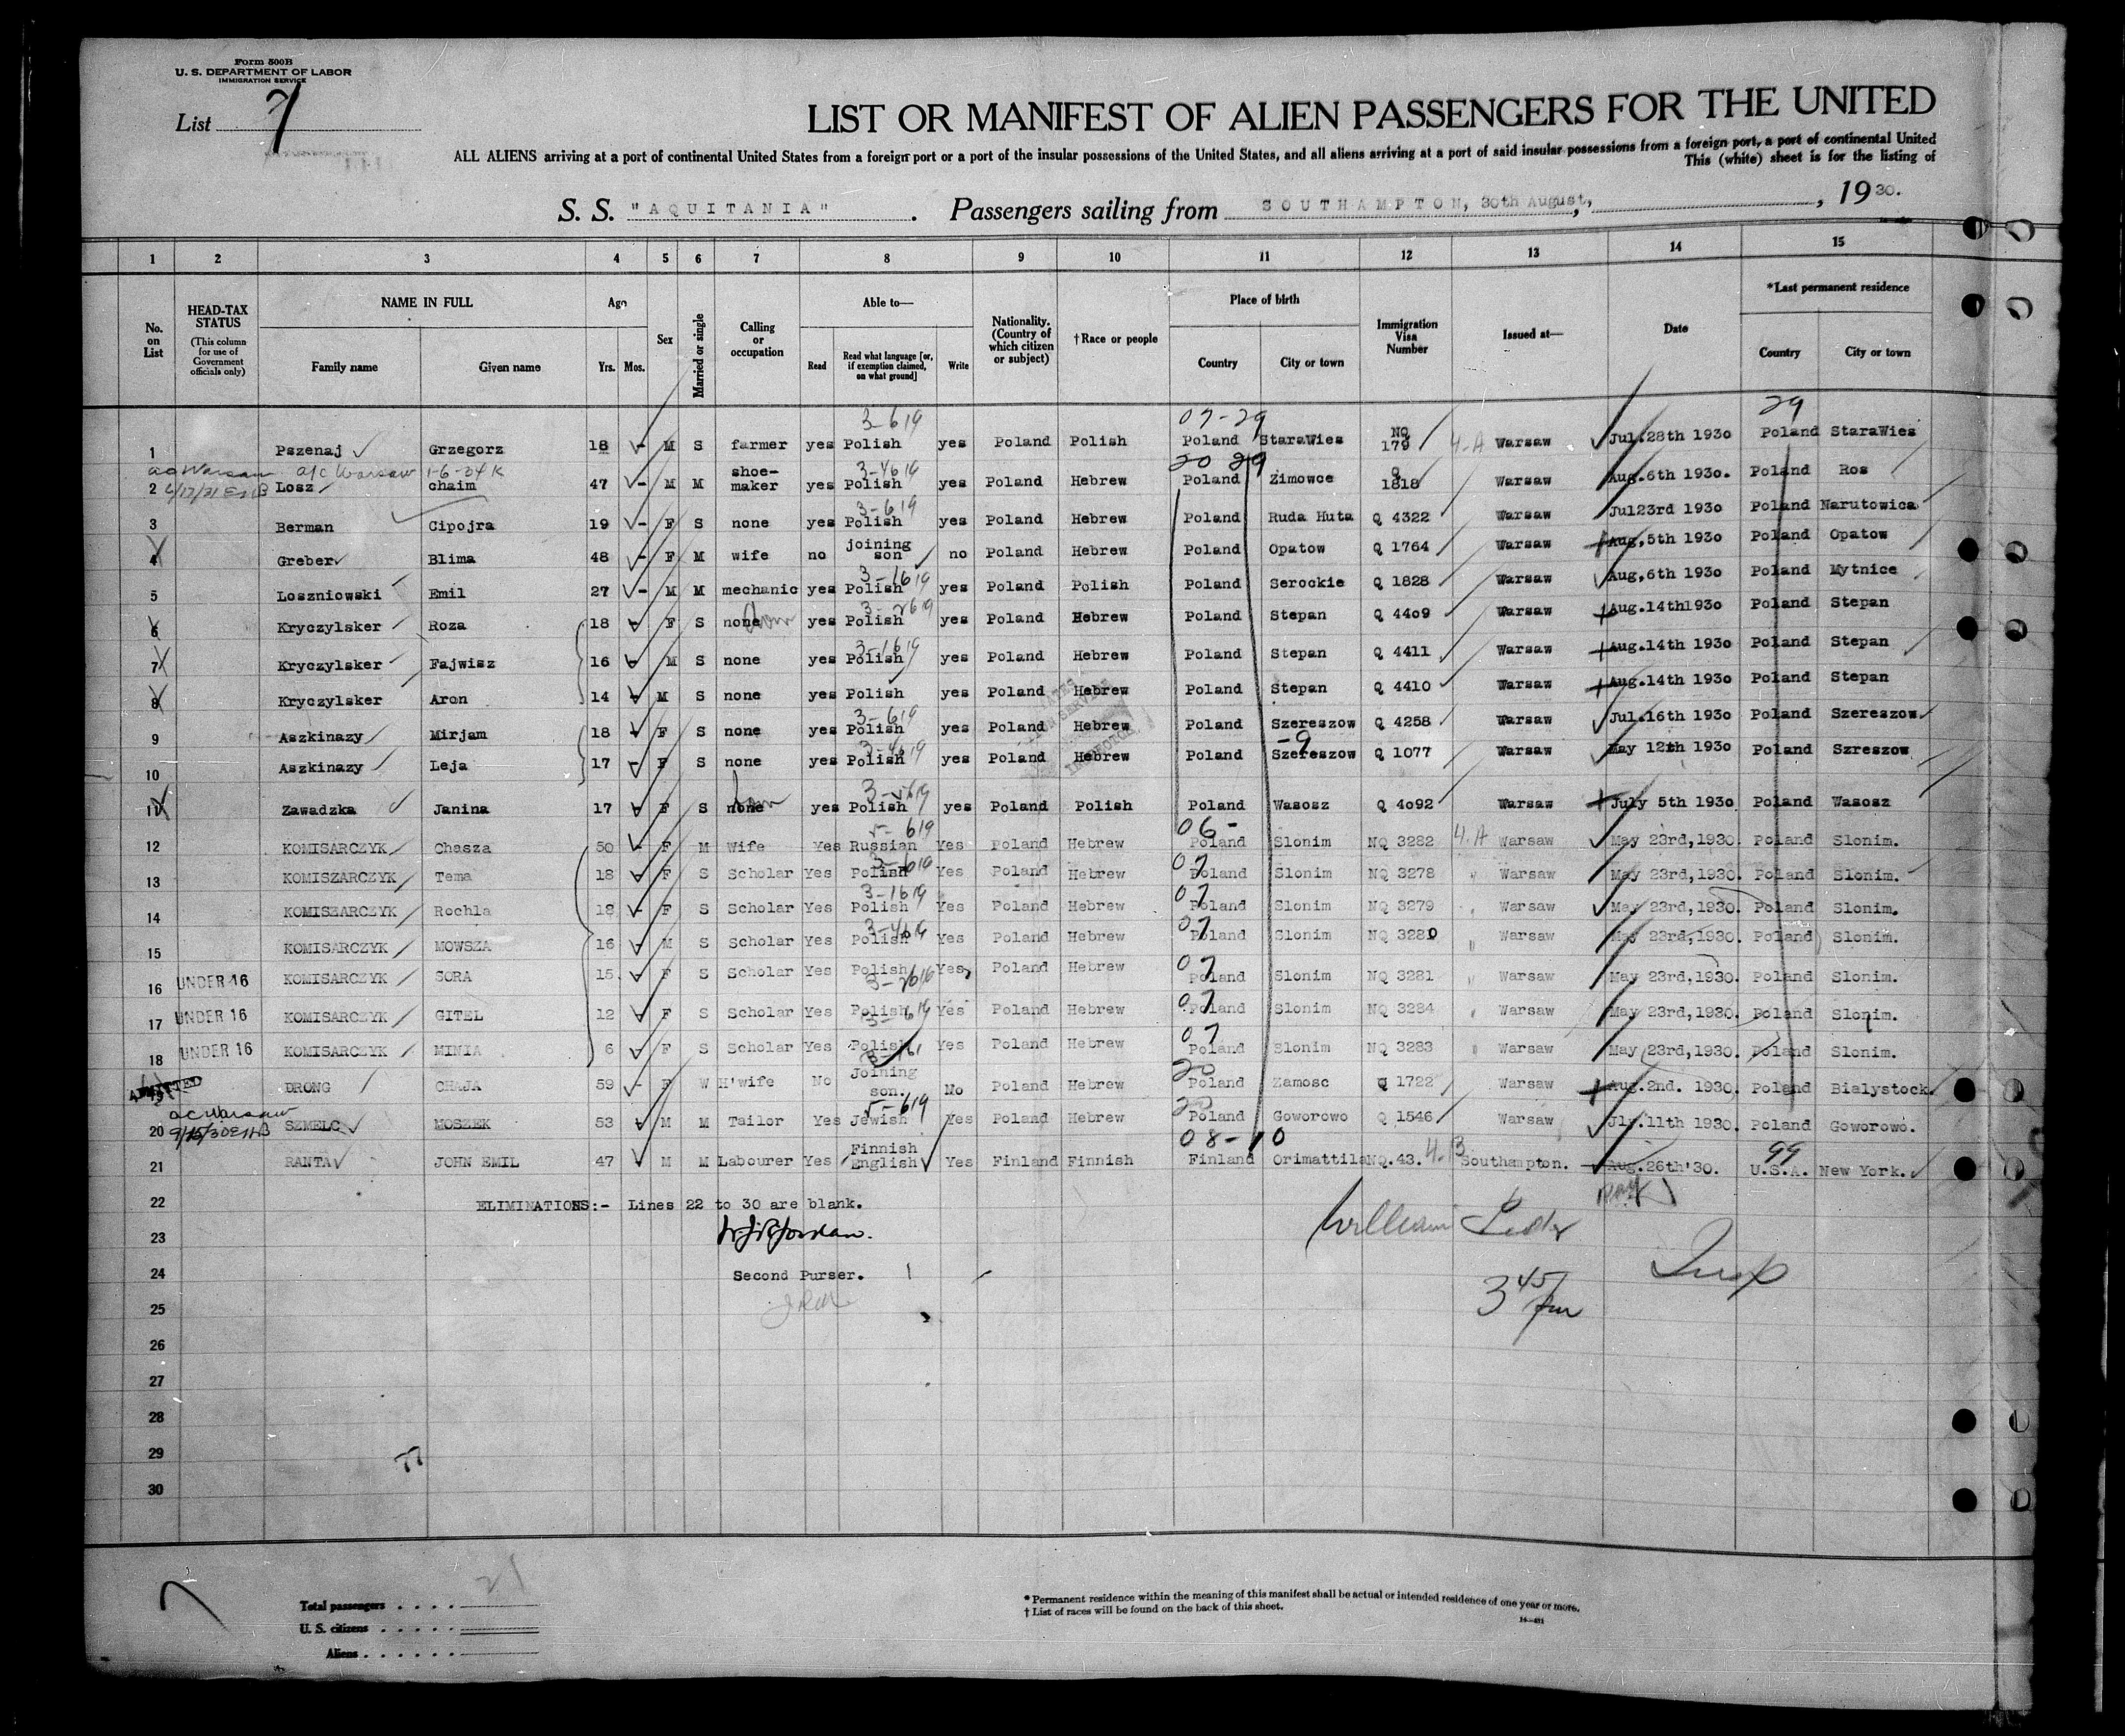 Form 500B
U. S. DEPARTMENT OF LABOR
IMMIGRATION SERVICE
List 7
LIST OR MANIFEST OF ALIEN PASSENGERS FOR THE UNITED
ALL ALIENS arriving at a port of continental United States from a foreign port or a port of the insular possessions of the United States, and all aliens arriving at a port of said insular possessions from a foreign port, a port of continental United
This (white) sheet is for the listing of
S. S. "AQUITANIA" . Passengers sailing from SOUTHAMPTON, 30th August, , 1930.
1 2 3 4 5 6 7 8 9 10 11 12 13 14 15
No. on List
HEAD-TAX STATUS (This column for use of Government officials only)
NAME IN FULL Family name Given name
Age Yrs. Mos.
Sex
Married or single
Calling or occupation
Able to— Read Read what language [or, if exemption claimed, on what ground] Write
Nationality. (Country of which citizen or subject)
†Race or people
Place of birth Country City or town
Immigration Visa Number
Issued at—
Date
*Last permanent residence Country City or town
3-619 07-29 29
1 Pszenaj Grzegorz 18 - M S farmer yes Polish yes Poland Polish Poland StaraWies NQ 179 4-A Warsaw Jul.28th 1930 Poland StaraWies
a/c Warsaw 1-6-34 K 3-4619 20 29
2 Losz chaim 47 - M M shoe-maker yes Polish yes Poland Hebrew Poland Zimowce Q 1818 Warsaw Aug.6th 1930. Poland Ros
3-619
3 Berman Cipojra 19 - F S none yes Polish yes Poland Hebrew Poland Ruda Huta Q 4322 Warsaw Jul23rd 1930 Poland Narutowica
4 Greber Blima 48 - F M wife no joining son no Poland Hebrew Poland Opatow Q 1764 Warsaw Aug,5th 1930 Poland Opatow
3-1619
5 Loszniowski Emil 27 - M M mechanic yes Polish yes Poland Polish Poland Serockie Q 1828 Warsaw Aug,6th 1930 Poland Mytnice
3-2619
6 Kryczylsker Roza 18 - F S none yes Polish yes Poland Hebrew Poland Stepan Q 4409 Warsaw Aug.14th1930 Poland Stepan
3-1619
7 Kryczylsker Fajwisz 16 - M S none yes Polish yes Poland Hebrew Poland Stepan Q 4411 Warsaw Aug.14th 1930 Poland Stepan
8 Kryczylsker Aron 14 - M S none yes Polish yes Poland Hebrew Poland Stepan Q 4410 Warsaw Aug.14th 1930 Poland Stepan
3-619
9 Aszkinazy Mirjam 18 - F S none yes Polish yes Poland Hebrew Poland Szereszow Q 4258 Warsaw Jul.16th 1930 Poland Szereszow.
3-4619 -9
10 Aszkinazy Leja 17 - F S none yes Polish yes Poland Hebrew Poland Szereszow Q 1077 Warsaw May 12th 1930 Poland Szreszow
11 Zawadzka Janina 17 - F S none yes Polish yes Poland Polish Poland Wasosz Q 4092 Warsaw July 5th 1930 Poland Wasosz
06-
12 KOMISARCZYK Chasza 50 - F M Wife Yes Russian Yes Poland Hebrew Poland Slonim NQ 3282 4-A Warsaw May 23rd,1930. Poland Slonim.
3-619 07
13 KOMISZARCZYK Tema 18 - F S Scholar Yes Polish Yes Poland Hebrew Poland Slonim NQ 3278 " Warsaw May 23rd,1930. Poland Slonim.
3-1619 07
14 KOMISZARCZYK Rochla 18 - F S Scholar Yes Polish Yes Poland Hebrew Poland Slonim NQ 3279 " Warsaw May 23rd,1930. Poland Slonim.
3-4619 07
15 KOMISARCZYK MOWSZA 16 - M S Scholar Yes Polish Yes Poland Hebrew Poland Slonim NQ 3280 " Warsaw May 23rd,1930. Poland Slonim.
07
16 UNDER 16 KOMISARCZYK SORA 15 - F S Scholar Yes Polish Yes, Poland Hebrew Poland Slonim NQ 3281 " Warsaw May 23rd.1930. Poland Slonim.
07
17 UNDER 16 KOMISARCZYK GITEL 12 - F S Scholar Yes Polish Yes Poland Hebrew Poland Slonim NQ 3284 " Warsaw May 23rd,1930. Poland Slonim.
07
18 UNDER 16 KOMISARCZYK MINIA 6 - F S Scholar Yes Polish Yes Poland Hebrew Poland Slonim NQ 3283 " Warsaw May 23rd,1930. Poland Slonim.
20
ADMITTED DRONG CHAJA 59 - F W H'wife No Joining son. No Poland Hebrew Poland Zamosc Q 1722 Warsaw Aug.2nd. 1930. Poland Bialystock.
ac Warsaw 20
20 SZMELC MOSZEK 53 - M M Tailor Yes Jewish Yes Poland Hebrew Poland Goworowo Q 1546 Warsaw Jly.11th 1930. Poland Goworowo.
08-10 99
21 RANTA JOHN EMIL 47 M M Labourer Yes Finnish English Yes Finland Finnish Finland Orimattila NQ.43. 4-B Southampton. Aug.26th'30. U.S.A. New York.
22 ELIMINATIONS:- Lines 22 to 30 are blank.
23 Jordan. William
24 Second Purser. Insp
25 3 45 pm
26
27
28
29
77
30
7 21
Total passengers
U. S. citizens
Aliens
* Permanent residence within the meaning of this manifest shall be actual or intended residence of one year or more.
† List of races will be found on the back of this sheet.